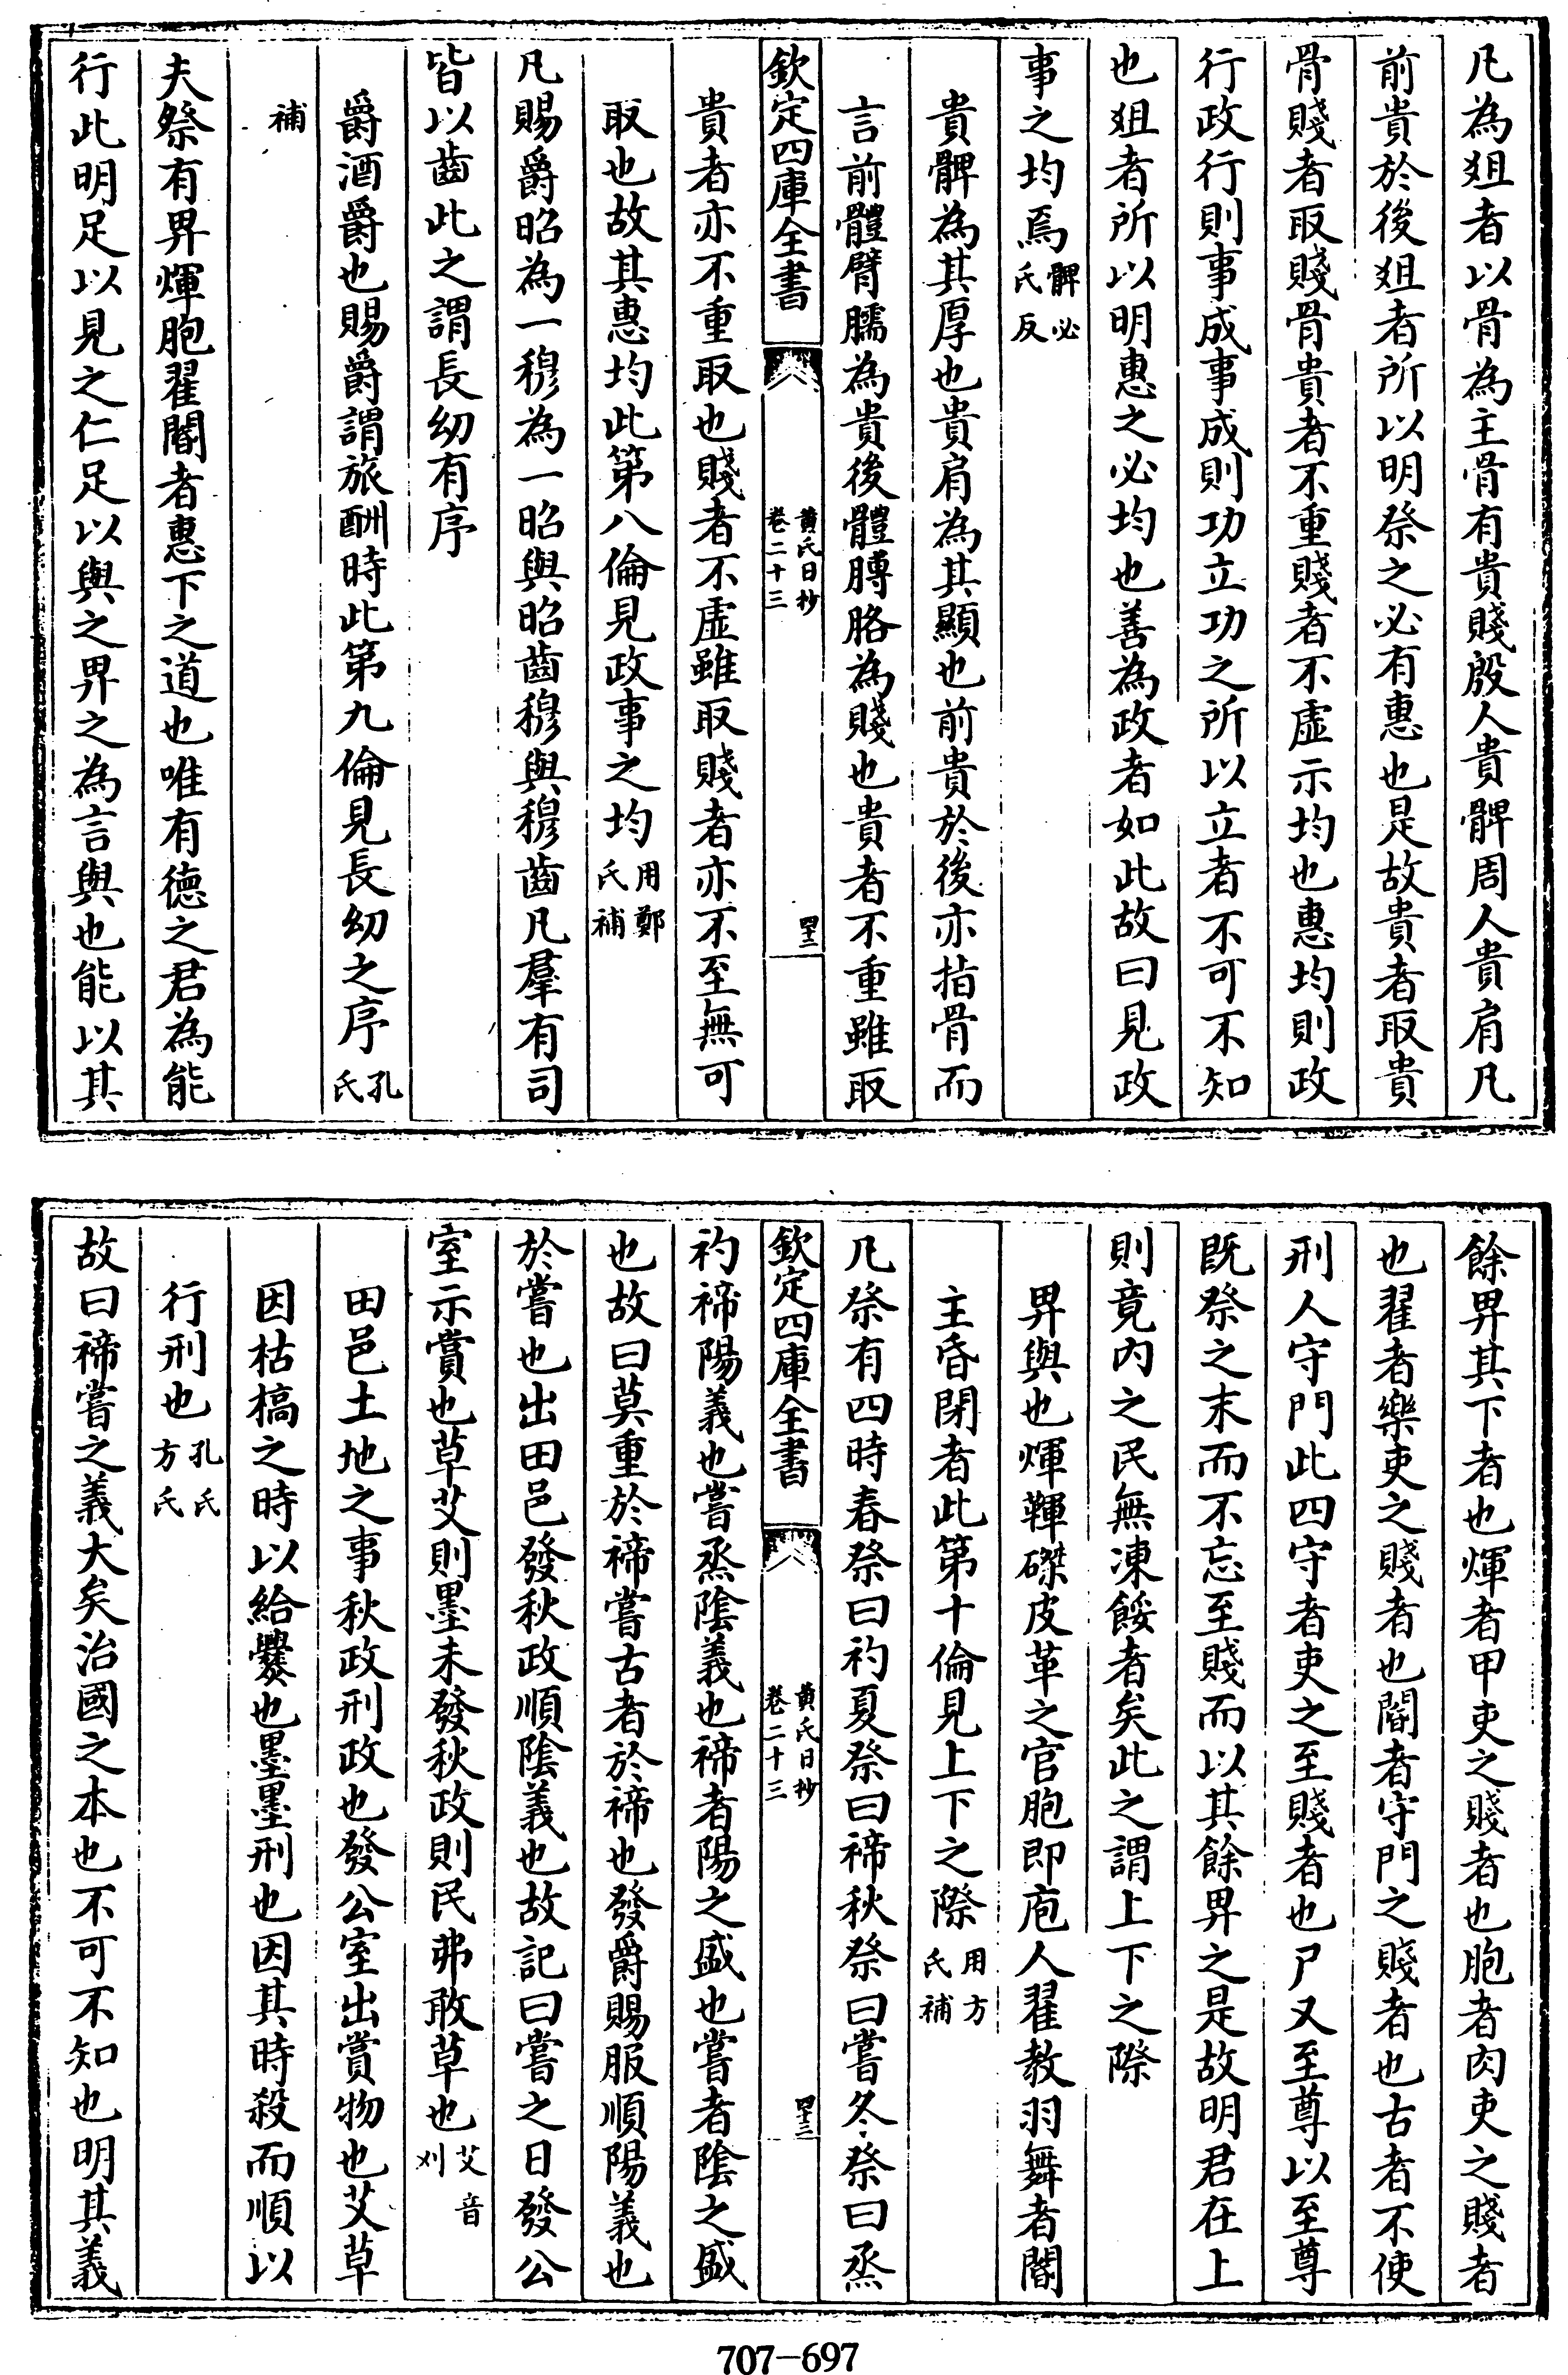 凡為爼者以骨為主骨有貴賤殷人貴髀周人貴肩凡
前貴於後爼者所以明祭之必有惠也是故貴者取貴
骨賤者取賤骨貴者不重賤者不虛示均也惠均則政
行政行則事成事成則功立功之所以立者不可不知
也爼者所以明惠之必均也善為政者如此故曰見政
事之均焉髀必
氏反
貴髀為其厚也貴肩為其顯也前貴於後亦指骨而
言前體臂臑為貴後體膞胳為賤也貴者不重雖取
欽定四庫全書
黃氏日抄
卷二十三
四十二
貴者亦不重取也賤者不虛雖取賤者亦不至無可
取也故其惠均此第八倫見政事之均用鄭
氏補
凡賜爵昭為一穆為一昭與昭齒穆與穆齒凡羣有司
皆以齒此之謂長幼有序
爵酒爵也賜爵謂旅酬時此第九倫見長幼之序孔
氏
補
夫祭有畀煇胞翟閽者惠下之道也唯有德之君為能
行此明足以見之仁足以與之畀之為言與也能以其
餘畀其下者也煇者甲吏之賤者也胞者肉吏之賤者
也翟者樂吏之賤者也閽者守門之賤者也古者不使
刑人守門此四守者吏之至賤者也尸又至尊以至尊
既祭之末而不忘至賤而以其餘畀之是故明君在上
則竟內之民無凍餒者矣此之謂上下之際
畀與也煇鞾磔皮革之官胞即庖人翟教羽舞者閽
主昏閉者此第十倫見上下之際用方
氏補
凡祭有四時春祭曰礿夏祭曰禘秋祭曰嘗冬祭曰烝
欽定四庫全書
黃氏日抄
卷二十三
四十三
礿禘陽義也嘗烝陰義也禘者陽之盛也嘗者陰之盛
也故曰莫重於禘嘗古者於禘也發爵賜服順陽義也
於嘗也出田邑發秋政順陰義也故記曰嘗之日發公
室示賞也草艾則墨未發秋政則民弗敢草也艾音
刈
田邑土地之事秋政刑政也發公室出賞物也艾草
因枯槁之時以給爨也墨墨刑也因其時殺而順以
行刑也孔氏
方氏
故曰禘嘗之義大矣治國之本也不可不知也明其義
707-697